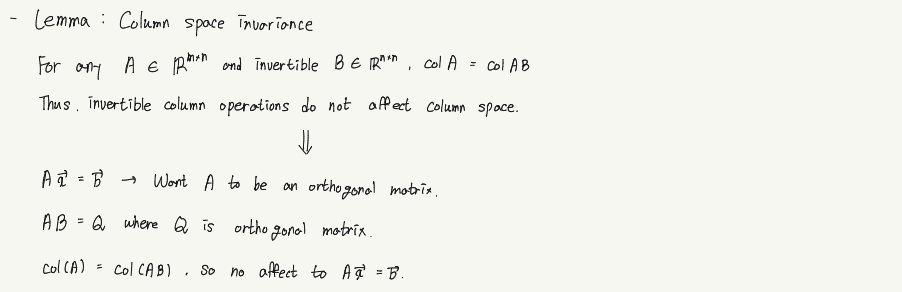 - Lemma : Column space invariance
For any A ∈ ℝ^{m×n} and invertible B ∈ ℝ^{n×n}, col A = col AB
Thus, invertible column operations do not affect column space.
⇓
A x⃗ = b⃗ → Want A to be an orthogonal matrix.
AB = Q where Q is orthogonal matrix.
col(A) = col(AB), so no affect to A x⃗ = b⃗.